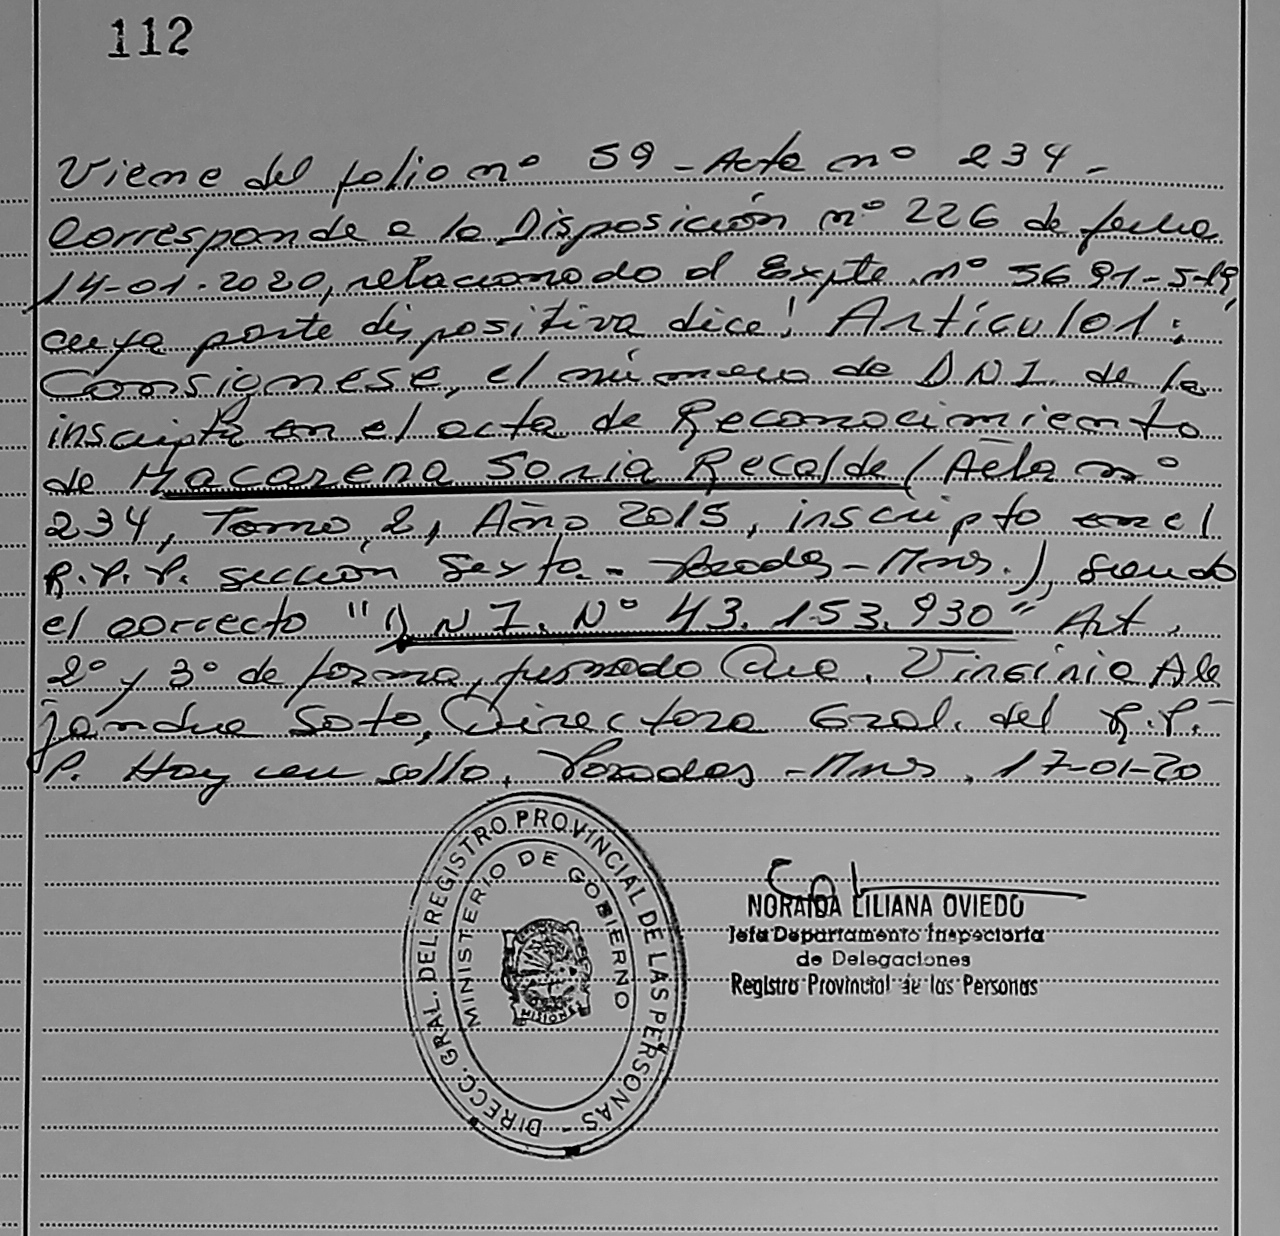 112
Viene del folio nº 59 - Acta nº 234 -
Corresponde a la Disposición nº 226 de fecha
14-01-2020, relacionado al Expte nº 5691-5-19,
cuya parte dispositiva dice: Artículo 1:
Consignese, el número de DNI. de la
inscripta en el acta de Reconocimiento
de Macarena Sonia Recalde (Acta nº
234, Tomo 2, Año 2015, inscripto en el
R.P.P. sección Sexta - Posadas - Mnes.), siendo
el correcto "DNI. Nº 43.153.930" Art.
2º y 3º de forma, firmado Que. Virginia Ale
jandra Soto, Directora Gral. del R.P.-
P. Hay un sello. Posadas - Mnes, 17-01-20
DIRECC. GRAL. DEL REGISTRO PROVINCIAL DE LAS PERSONAS -
MINISTERIO DE GOBIERNO
MISIONES
NORAIDA LILIANA OVIEDO
Jefa Departamento Inspectoria
de Delegaciones
Registro Provincial de las Personas